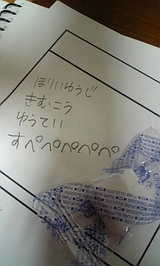 ほりいゆうじ
きむこう
ゆうてい
すぺぺぺぺぺ